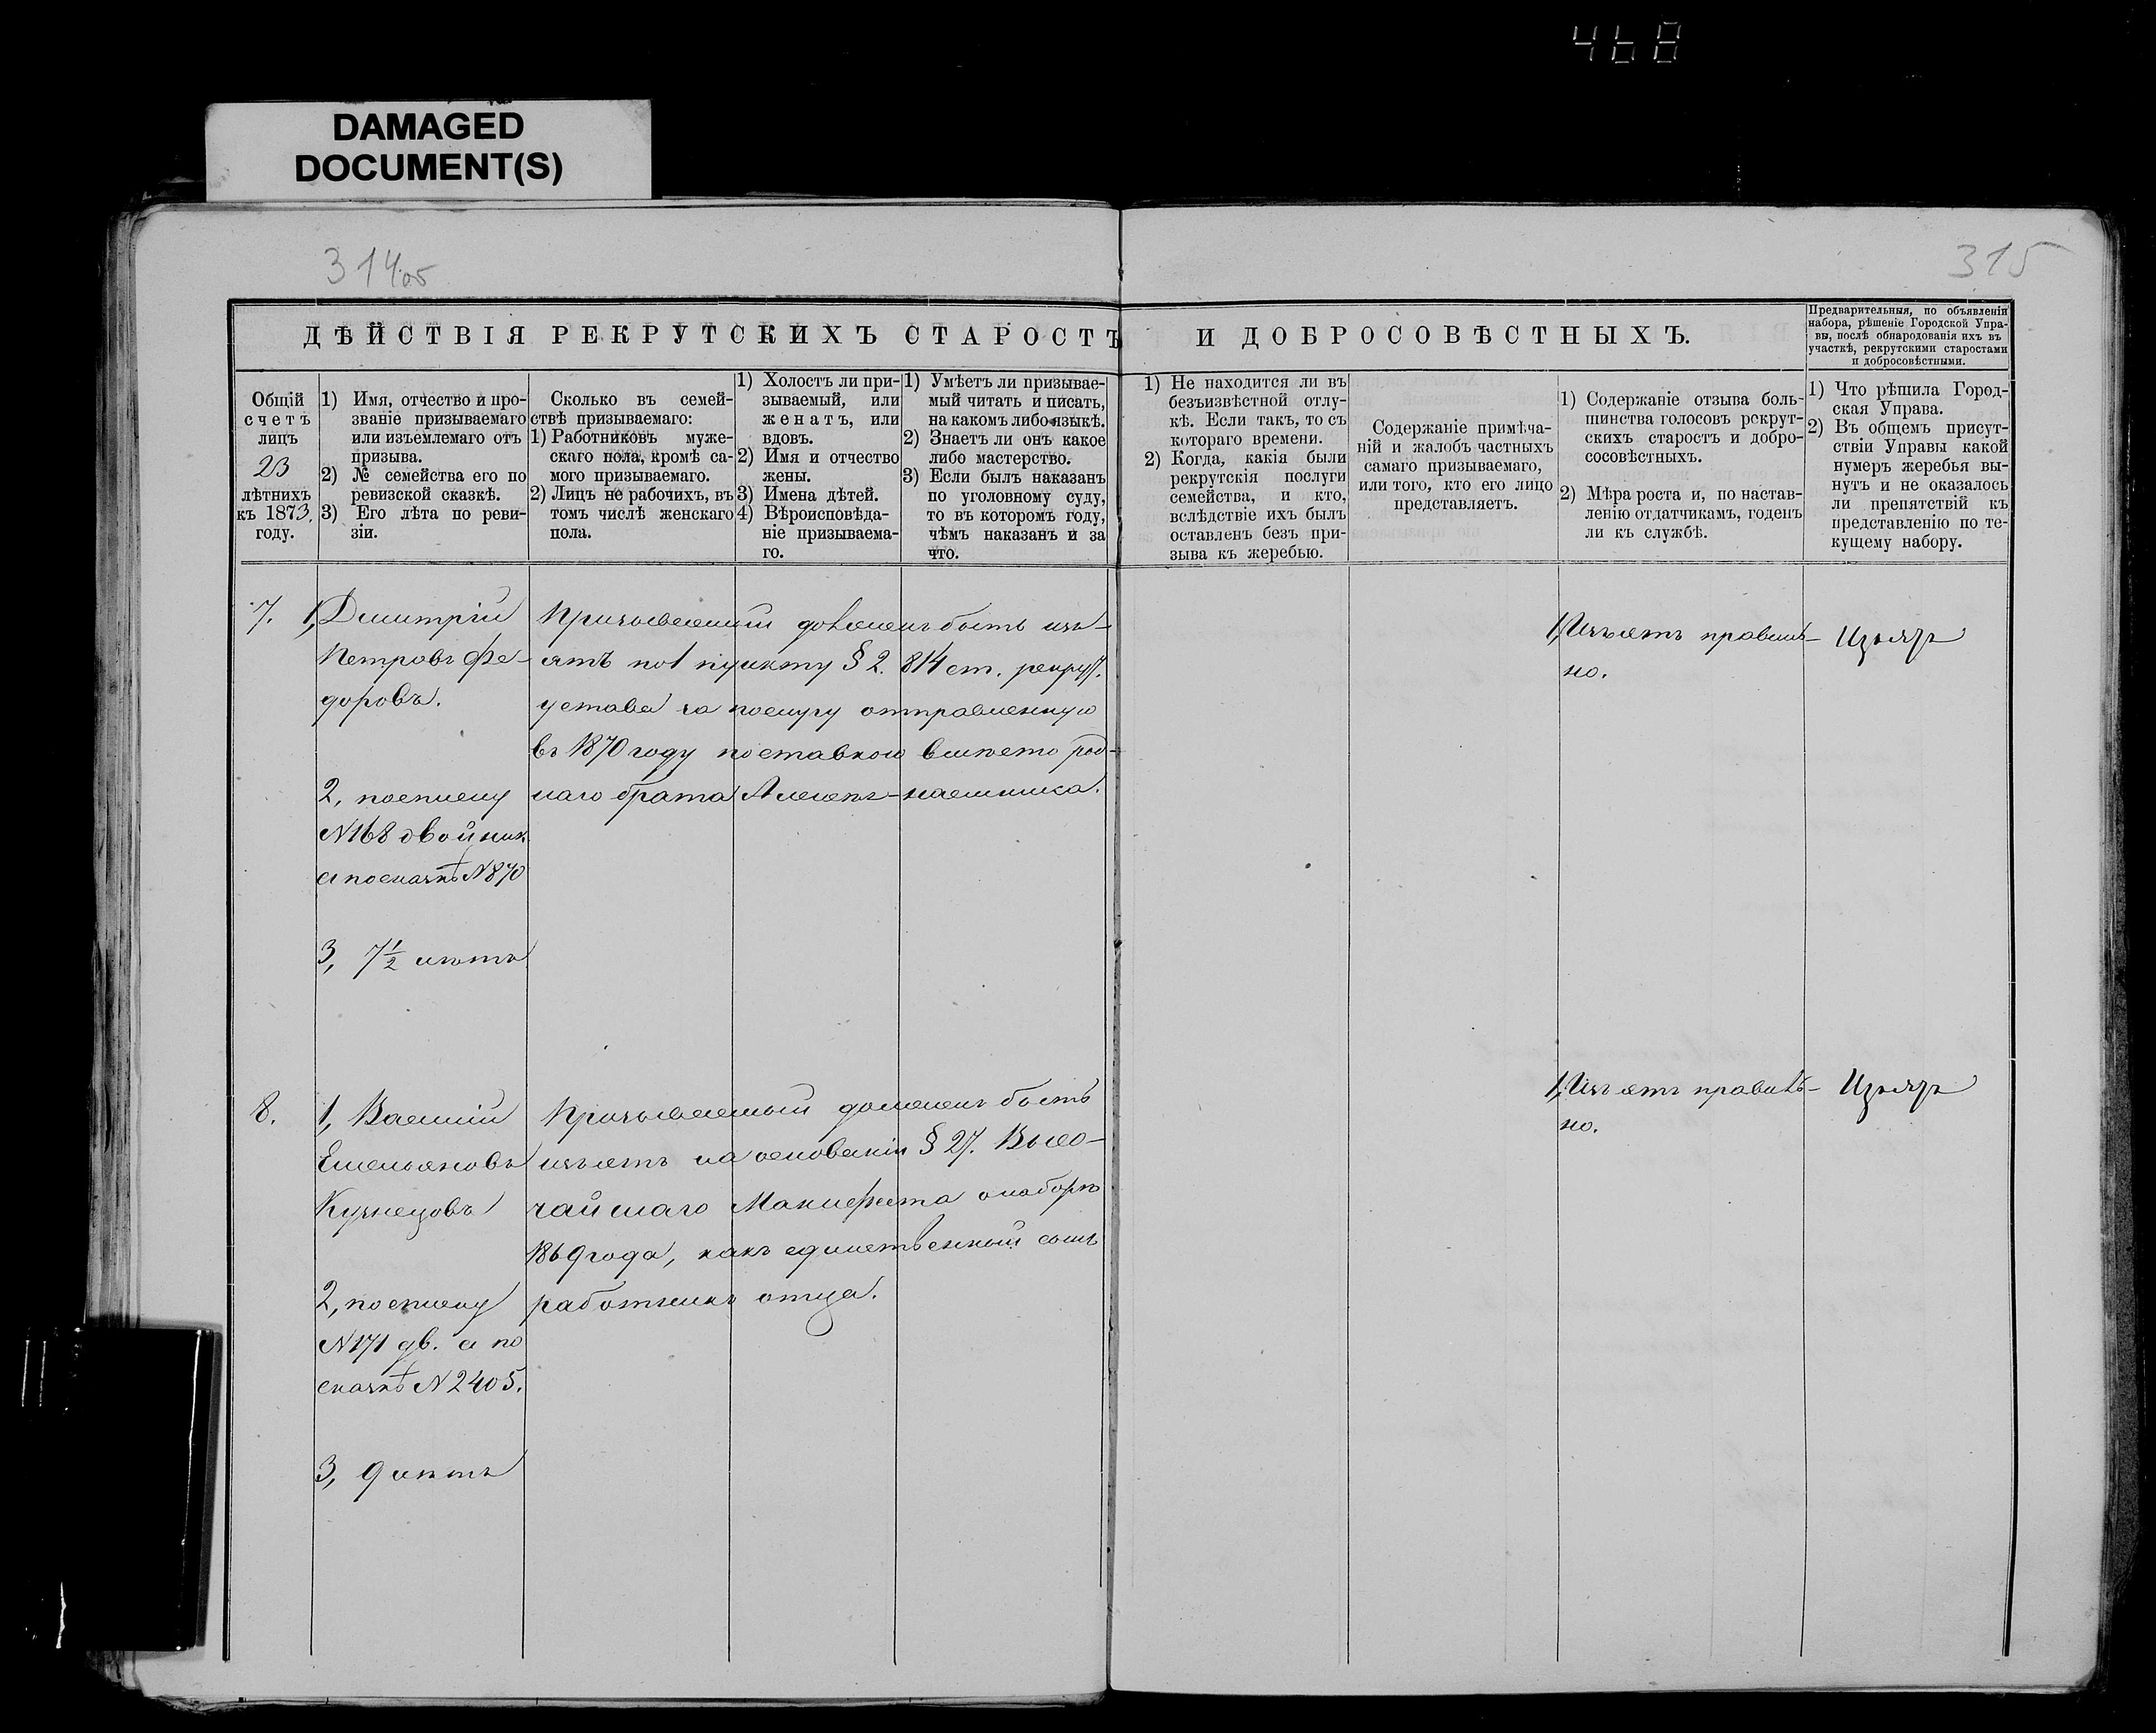 468
DAMAGED
DOCUMENT(S)
314об
315
ДѢЙСТВІЯ РЕКРУТСКИХЪ СТАРОСТЪ И ДОБРОСОВѢСТНЫХЪ.
Предварительныя, по объявленіи
набора, рѣшеніе Городской Упра-
вы, послѣ обнародованія ихъ въ
участкѣ, рекрутскими старостами
и добросовѣстными.
Общій
счетъ
лицъ
23
лѣтнихъ
къ 1873.
году.
1) Имя, отчество и про-
званіе призываемаго
или изъемлемаго отъ
призыва.
2) № семейства его по
ревизской сказкѣ.
3) Его лѣта по реви-
зіи.
Сколько въ семей-
ствѣ призываемаго:
1) Работниковъ муже-
скаго пола, кромѣ са-
мого призываемаго.
2) Лицъ не рабочихъ, въ
томъ числѣ женскаго
пола.
1) Холостъ ли при-
зываемый, или
женатъ, или
вдовъ.
2) Имя и отчество
жены.
3) Имена дѣтей.
4) Вѣроисповѣда-
ніе призываема-
го.
1) Умѣетъ ли призывае-
мый читать и писать,
на какомъ либо языкѣ.
2) Знаетъ ли онъ какое
либо мастерство.
3) Если былъ наказанъ
по уголовному суду,
то въ которомъ году,
чѣмъ наказанъ и за
что.
1) Не находится ли въ
безъизвѣстной отлу-
кѣ. Если такъ, то съ
котораго времени.
2) Когда, какія были
рекрутскія послуги
семейства, и кто,
вслѣдствіе ихъ былъ
оставленъ безъ при-
зыва къ жеребью.
Содержаніе примѣча-
ній и жалобъ частныхъ
самаго призываемаго,
или того, кто его лицо
представляетъ.
1) Содержаніе отзыва боль-
шинства голосовъ рекрут-
скихъ старостъ и добро-
сосовѣстныхъ.
2) Мѣра роста и, по настав-
ленію отдатчикамъ, годенъ
ли къ службѣ.
1) Что рѣшила Город-
ская Управа.
2) Въ общемъ присут-
ствіи Управы какой
нумеръ жеребья вы-
нутъ и не оказалось
ли препятствій къ
представленію по те-
кущему набору.
7.
1, Дмитрій
Петровъ Фе-
доровъ.
2, по списку
N168 двойник.
а по сказкѣ N870
3, 7½ лѣтъ
Призываемый долженъ быть изъ-
ятъ по 1 пункту § 2. 814 ст. рекрут.
устава за послугу отправленную
въ 1870 году поставкою вмѣсто род-
наго брата наемщика.
1, Изъятъ правиль-
но.
Изъятъ
8.
1, Василій
Емельяновъ
Кузнецовъ
2, по списку
N171 дв. а по
сказкѣ N2405.
3, 9 лѣтъ
Призываемый долженъ быть
изъятъ на основаніи § 27. Высо-
чайшаго Манифеста о наборѣ
1869 года, какъ единственный сынъ
работникъ отца.
1, Изъятъ правиль-
но.
Изъятъ